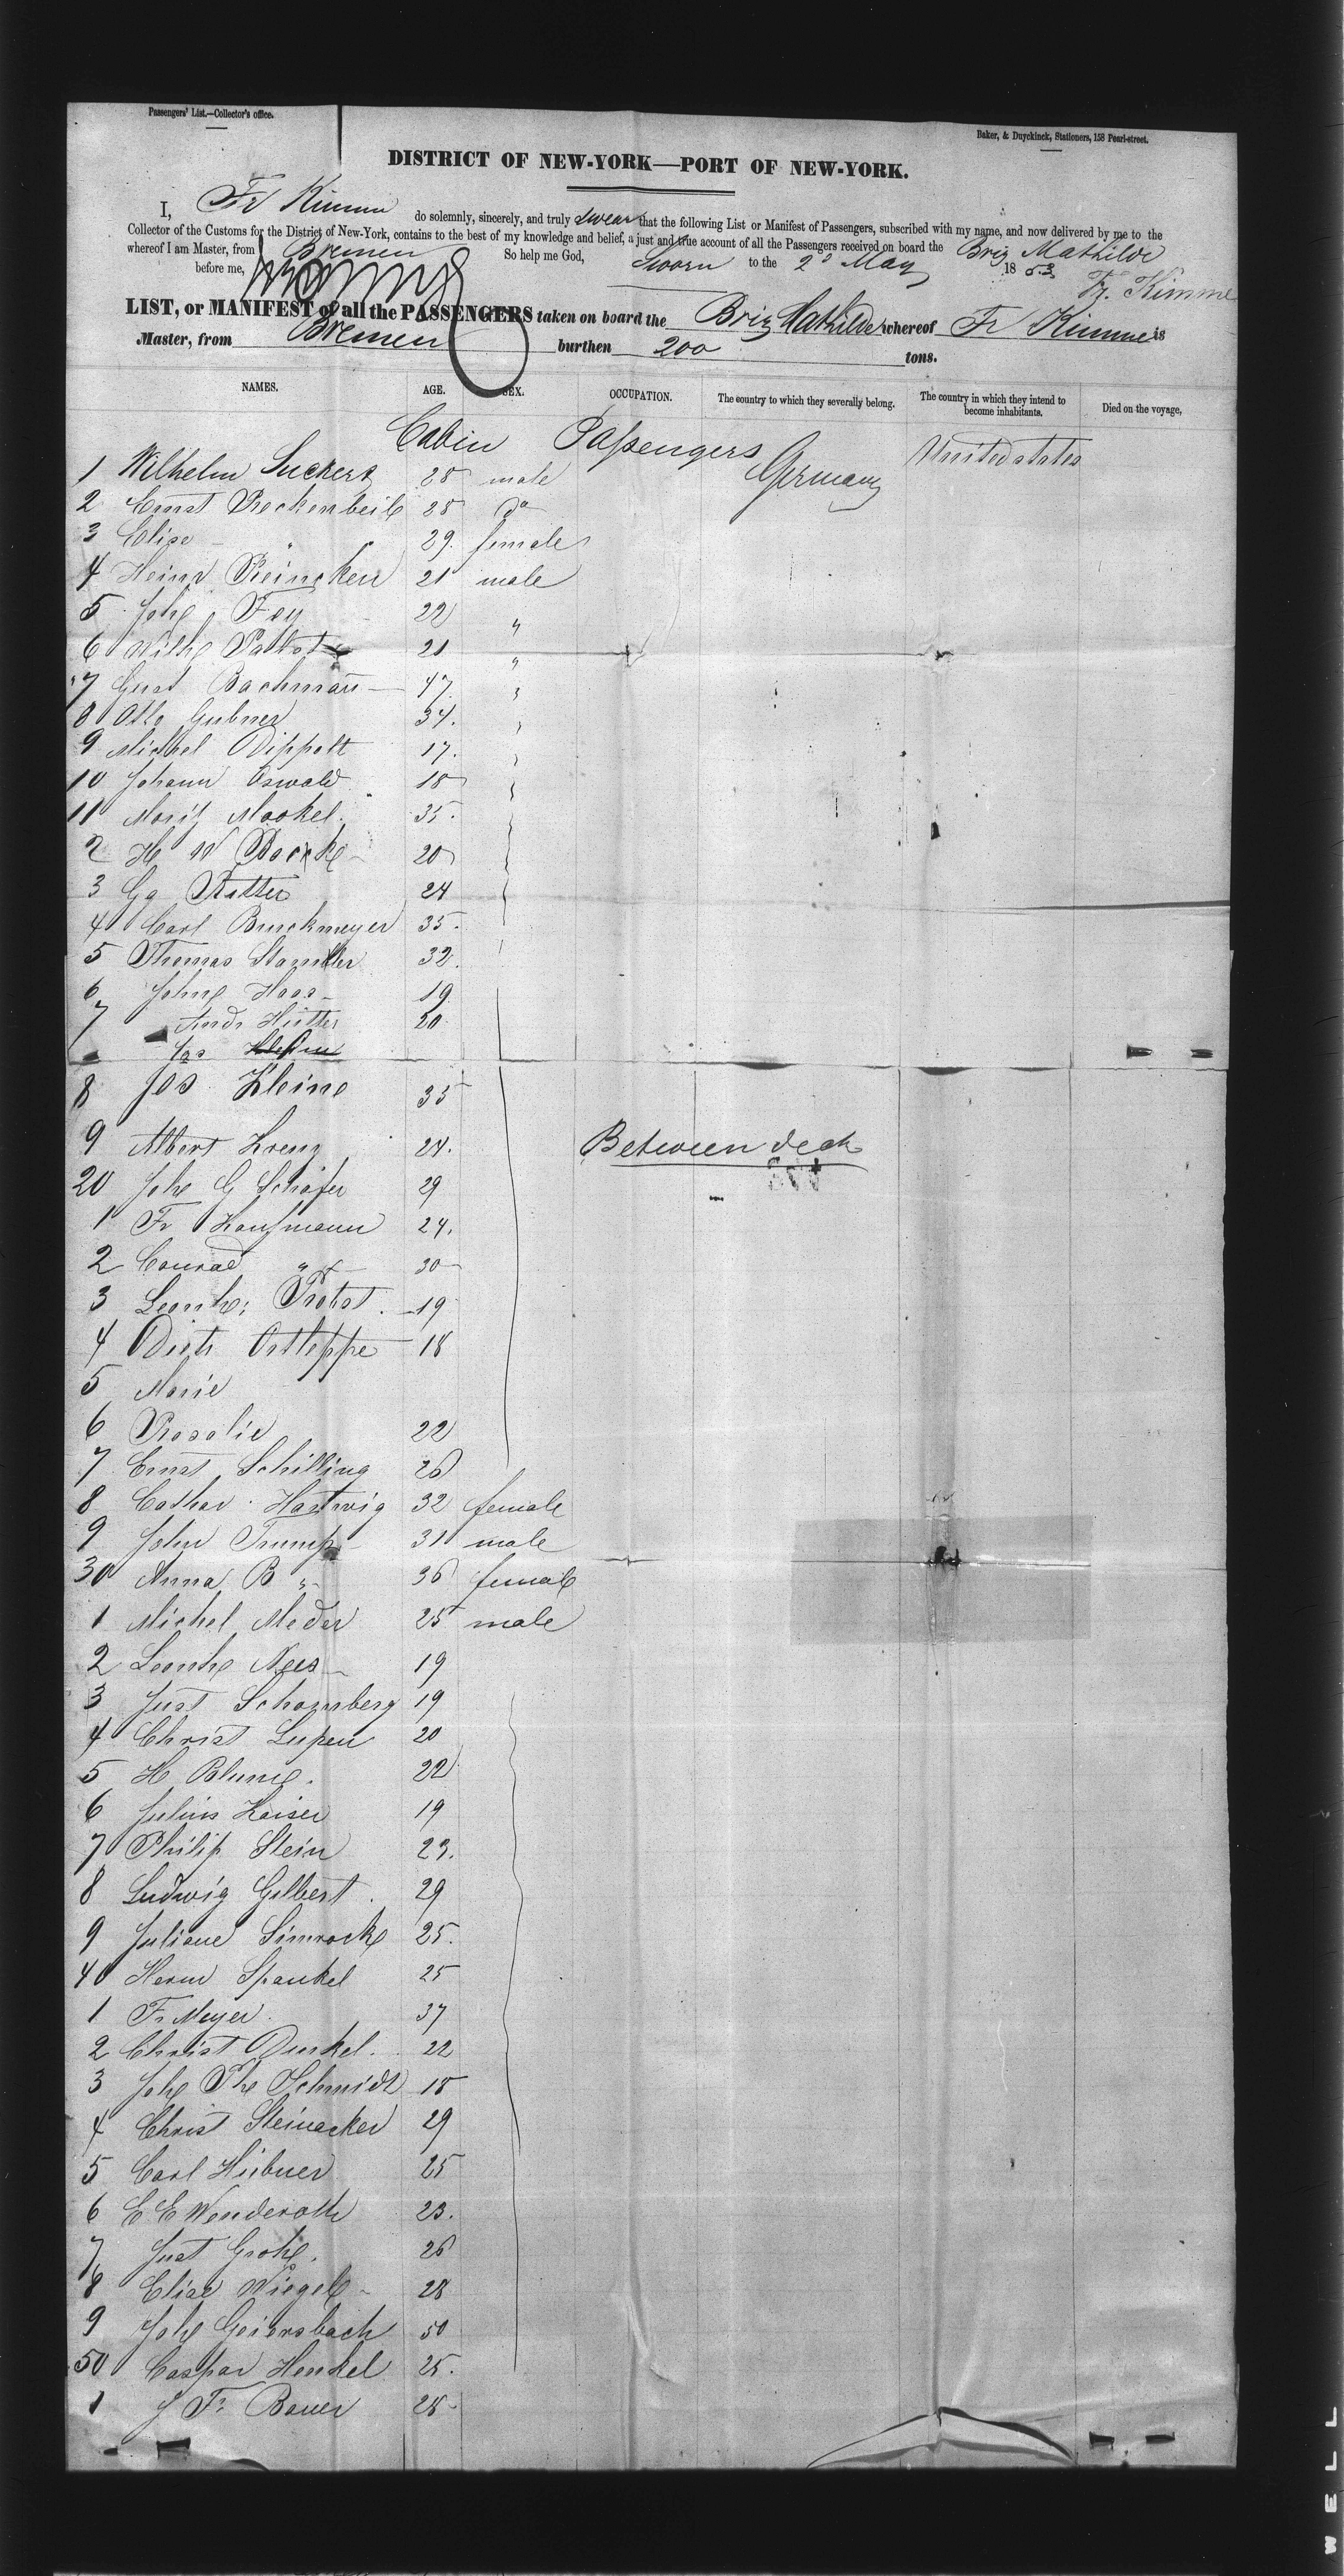 Passengers' List.—Collector's office.
Baker, & Duyckinck, Stationers, 158 Pearl-street.
DISTRICT OF NEW-YORK—PORT OF NEW-YORK.
I, Fr Kimme do solemnly, sincerely, and truly swear that the following List or Manifest of Passengers, subscribed with my name, and now delivered by me to the
Collector of the Customs for the District of New-York, contains to the best of my knowledge and belief, a just and true account of all the Passengers received on board the Brig Mathilde
whereof I am Master, from Bremen So help me God,
Sworn to the 2d May 1853
before me, Fr. Kimme
LIST, or MANIFEST of all the PASSENGERS taken on board the Brig Mathilde whereof Fr Kimme is
Master, from Bremen burthen 200 tons.
NAMES. AGE. SEX. OCCUPATION. The country to which they severally belong. The country in which they intend to become inhabitants. Died on the voyage,
Cabin Passengers
1 Wilhelm Suckers 28 male Germany United states
2 Ernst Reckenbeil 28 do
3 Elise " 29. female
4 Heinr Reincken 21 male
5 Joh Fey 22 "
6 Wilh 21 "
7 Gust Bachmann 47 "
8 Otto Gubner 34.
9 Michel Dippolt 17.
10 Johann Oswald 18
11 Moritz Mockel. 35.
2 H W Boecke 20
3 Gg Ritter 24
4 Carl Burckmeyer 35.
5 Thomas 32.
6 Joh Haas 19
7 Andr Hutter 20
Jos
8 Jos Kleine 35
Between deck
9 Albert Krenz 24.
20 Joh G Schäfer 29
1 Fr Kaufmann 24.
2 Conrad " 30
3 Leonh: Probst. 19
4 Dietr Ortleppe 18
5 Marie
6 Rosalie 22
7 Ernst Schilling 26
8 Cathar Hartwig 32 female
9 John Trump 31 male
30 Anna B " 36 female
1 Michel Meder 25 male
2 Leonh Nees 19
3 Just Schomberg 19
4 Christ Lupen 20
5 H Blume. 22
6 Julius Kaiser 19
7 Philip Stein 23.
8 Ludwig Gilbert. 29
9 Juliane Simrock 25.
40 Herm Spankel 25
1 Fr Meyer. 37
2 Christ Dunkel. 22
3 Joh Ph Schmidt 18
4 Christ Steinacker 29
5 Carl Hübner 25
6 E E Wenderoth 23.
7 Just Grohe. 26
8 Elise Wiegel 28
9 Joh Geiersbach 50
50 Caspar Henkel 25.
1 J Fr Bauer 28
WELL